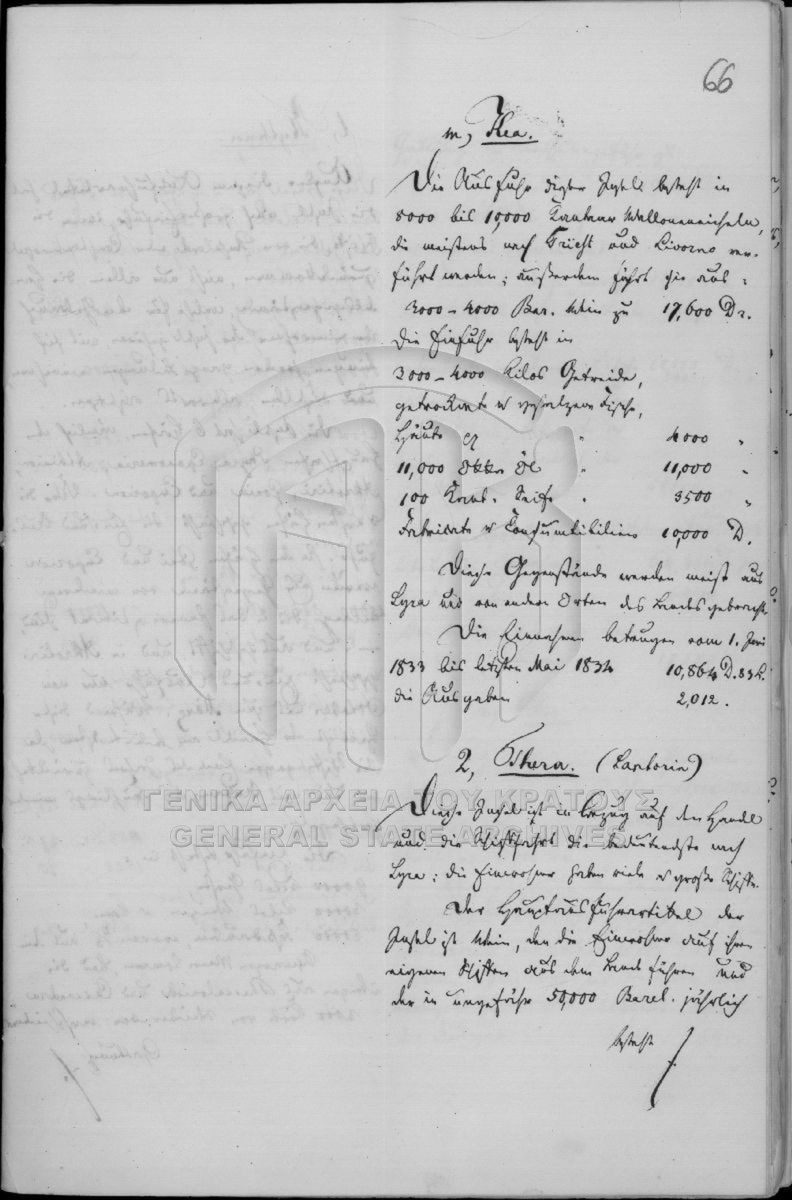 66
m, Kea.
Die Ausfuhr dieser Insel besteht in
8000 bis 10,000 Kantar Walloneneicheln,
die meistens nach Triest und Livorno ver-
führt werden; außerdem führt sie aus:
3000-4000 Bar. Wein zu 17,600 Dr.
Die Einfuhr besteht in
3000-4000 Kilos Getreide,
getrocknete u gesalzene Fische,
Häute " 4000 "
11,000 Okken Öl " 11,000 "
100 Kant. Seife " 3500 "
Fabrikate u Consumtibilien 10,000 D.
Diese Gegenstände werden meist aus
Syra und von andern Orten des Landes gebracht.
Die Einnahmen betrugen vom 1. Juni
1833 bis letzten Mai 1834 10,864 D. 83 L.
die Ausgaben 2,012.
2, Thera. (Santorin)
Diese Insel ist in Bezug auf den Handel
und die Schifffahrt die bedeutendste nach
Syra; die Einwohner haben viele u große Schiffe.
Der Hauptausfuhrartikel der
Insel ist Wein, den die Einwohner auf ihren
eigenen Schiffen aus dem Lande führen und
der in ungefähr 50,000 Barel. jährlich
besteht
ΓΕΝΙΚΑ ΑΡΧΕΙΑ ΤΟΥ ΚΡΑΤΟΥΣ
GENERAL STATE ARCHIVES